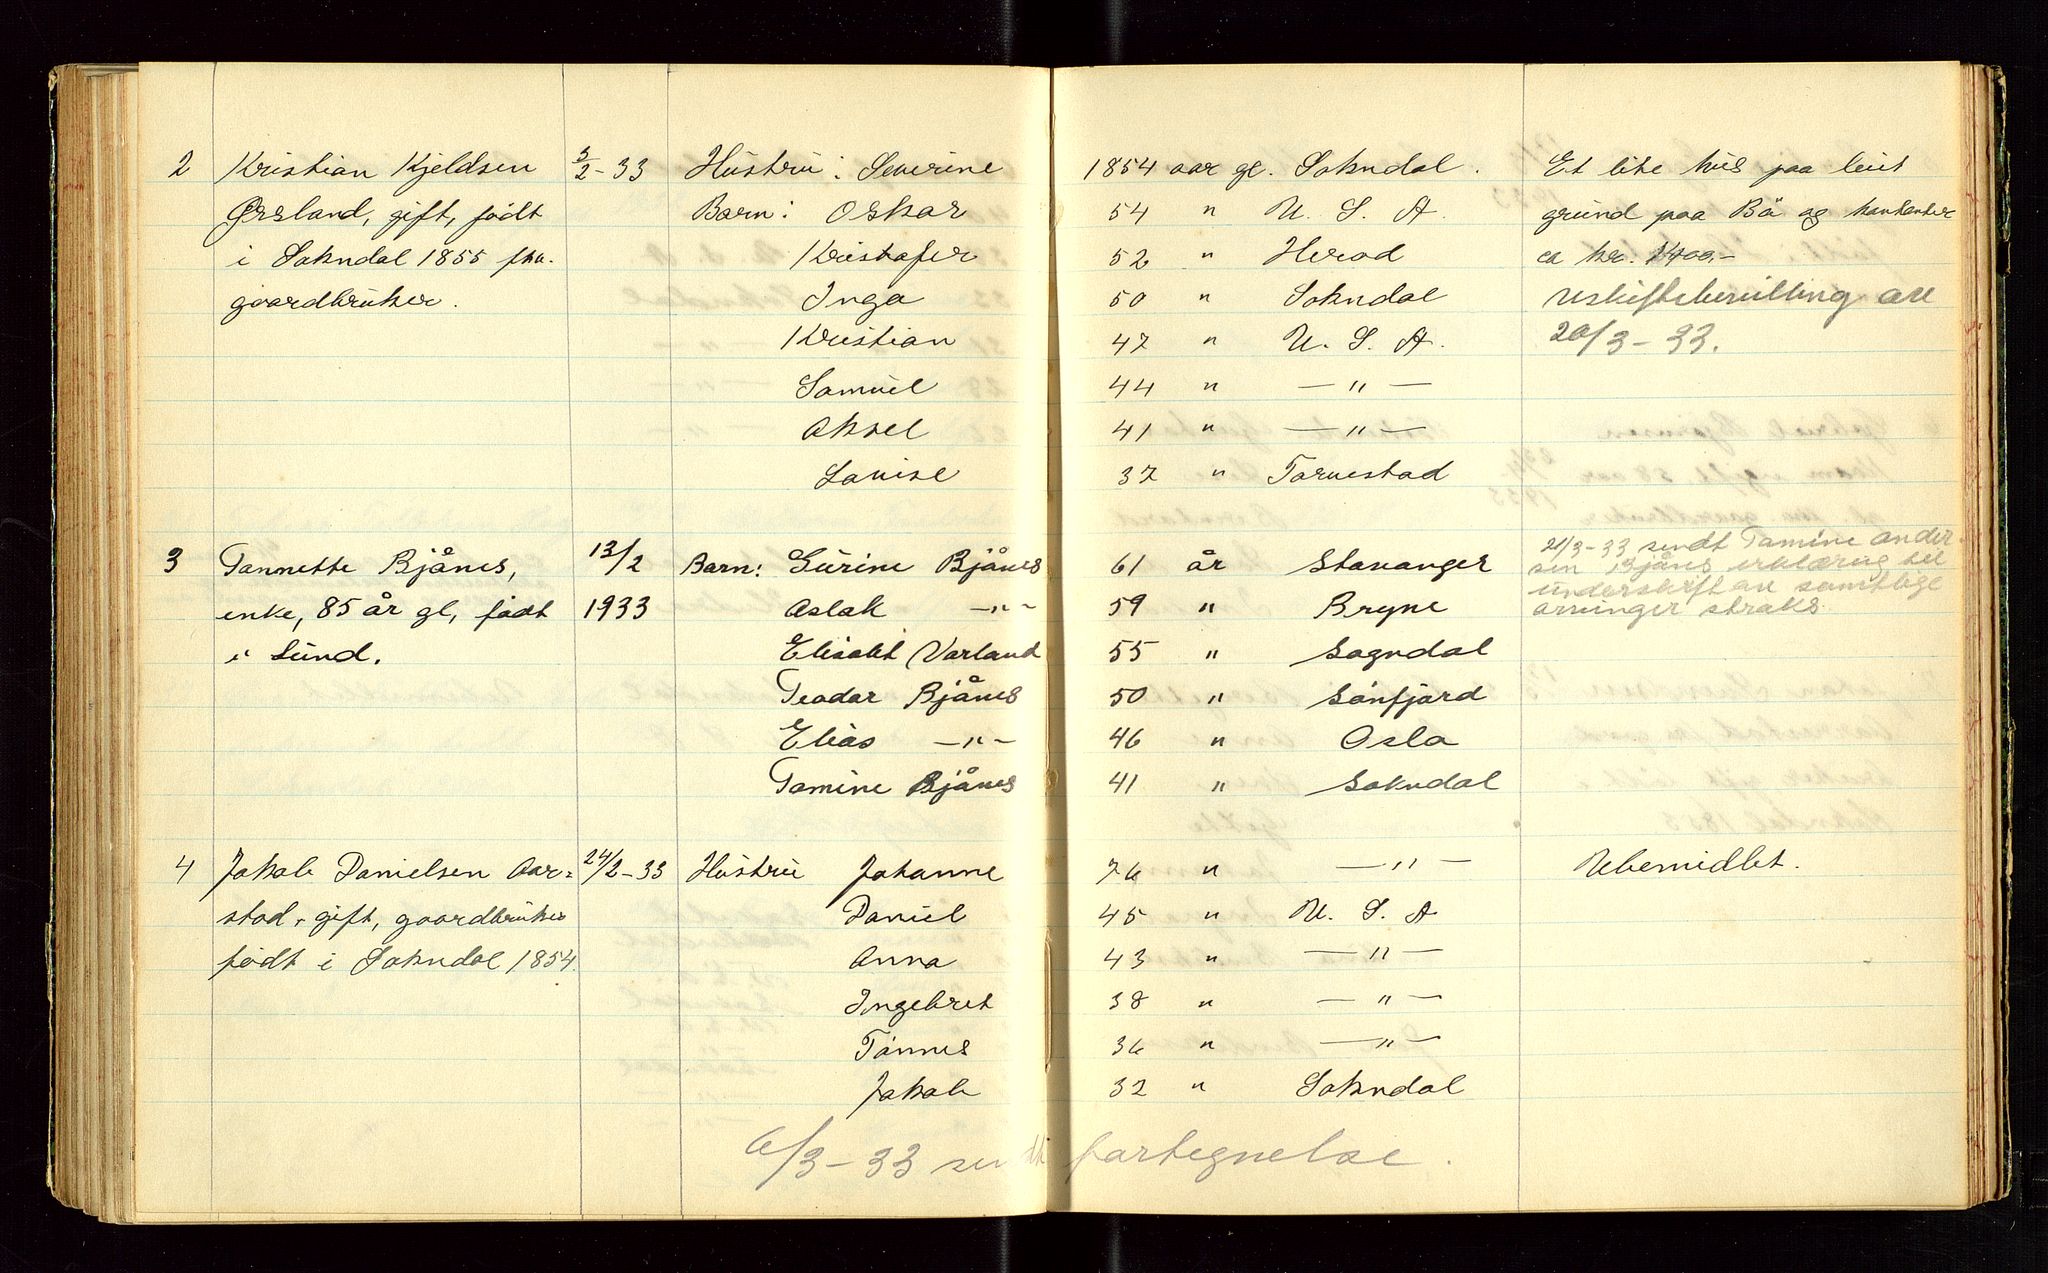 2 Kristian Kjeldsen 3/2-33 Hustru: Severine 1854 aar gl. Sokndal. Et lite hus paa leiet
Ørsland, gift, født Barn: Oskar 54 " U. S. A. grund paa Bø og kontanter
i Sokndal 1855 fhv. Kristofer 52 " Herad ca kr. 1400.-
gaardbruker. Inga 50 " Sokndal Uskiftebevilling avl
Kristian 47 " U. S. A. 20/3-33.
Samuel 44 " — " —
Aksel 41 " — " —
Lovise 37 " Tarnestad
3 Tannette Bjånes, 13/2 Barn: Surine Bjånes 61 år Stavanger 21/3-33 sendt Tomine Ander-
enke, 85 år gl, født 1933 Aslak — " — 59 " Bryne sen Bjånes erklæring til
i Lund. Elisabet Varland 55 " Sogndal underskrift av samtlige
Teodor Bjånes 50 " Sönfjord arvinger straks.
Elias — " — 46 " Oslo
Tomine Bjånes 41 " Sokndal
4 Jakob Danielsen Aar= 24/2-33 Hustru Johanne 76 " — " — Ubemidlet.
stad, gift, gaardbruker Daniel 45 " U. S. A
født i Sokndal 1854. Anna 43 " — " —
Ingebret 38 " — " —
Tönnes 36 " — " —
Jakob 32 " Sokndal
6/3-33 sendt fortegnelse.